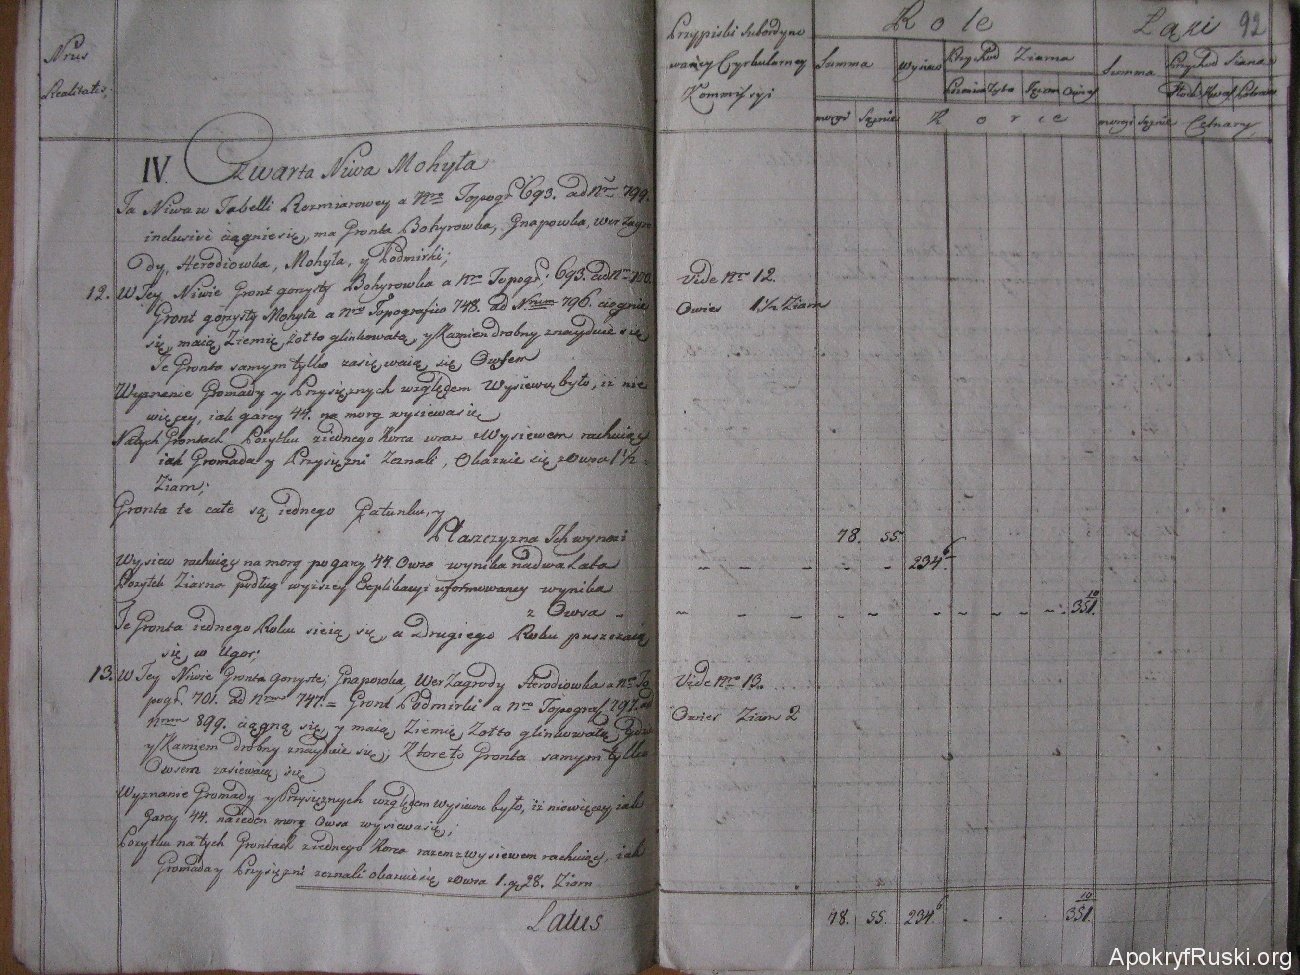 Nrus
Realitatis;
IV. Czwarta Niwa Mohyła
Ta Niwa w Tabelli Rozmiarowey a Nro Topogr 693. ad Nr 799.
inclusive ciągnie się, ma Gronta Bohyrowka, Gnapowka, Werzagro
dy, Herodiowka, Mohyła, y Podmirki;
12. W Tey Niwie Gront gorzysty Bohyrowka a Nro Topogr; 693. ad Nro 700.
Gront gorzysty Mohyła a Nro Topografico 748. ad Nrum 796. ciągnie
się, maią Ziemię żołto glinkowatą, y Kamien drobny znayduie się
Te Gronta samym tylko zasiewaią się Owsem
Wyznanie Gromady y Przysiężnych względem Wysiewu było, iż nie
więcey, iak garcy 44. na morg wysiewa się
Na tych Grontach Pożytku z iednego Korca wraz z Wysiewem rachuiąc
iak Gromada y Przysiężni Zeznali, Okazuie się z Owsa 1½
Ziarn;
Gronta te całe są iednego Gatunku, y
Płaszczyzna Ich wynosi
Wysiew rachuiąc na morg po garcy 44. Owsa wynika na dwa Lata
Pożytek Ziarna podług wyższey Explikacyi uformowaney wynika
z Owsa
Te Gronta iednego Roku sieią się, a Drugiego Roku puszczaią
się w Ugor;
13. W Tey Niwie Gronta gorzyste; Gnapowka, Werzagrody Herodiowka a Nro To
pogr. 701. ad Nrum 747. = Gront Podmirki a Nro Topograf 797. ad
Nrum 899. ciągną się, y maią Ziemię żołto glinkowatą, gdzie
y Kamień drobny znayduie się; Ktore to Gronta samym tylko
Owsem zasiewaią się
Wyznanie Gromady y Przysiężnych względem Wysiewu było, iż niewięcey iak
Garcy 44. na ieden morg Owsa wysiewa się;
Pożytku na tych Grontach z iednego Korca razem z wysiewem rachuiąc, iak
Gromada y Przysiężni zeznali okazuie się z owsa 1. g 28. Ziarn
Latus
Przypiski Subordyno
waney Cyrkularney
Kommissyi
Role
Łąki 92
Summa Wysiew Przy Chod Ziarna Summa Przy Chod Siana
Pszenica Żyta Jęczm Owies
morgi Sężnie Korce morgi Sężnie Cetnary
Vide Nro 12.
Owies 1½ Ziarn
78. 55.
234 6
10
351.
Vide Nro 13.
Owies Ziarn 2
78. 55. 234 6 10
351.
ApokryfRuski.org